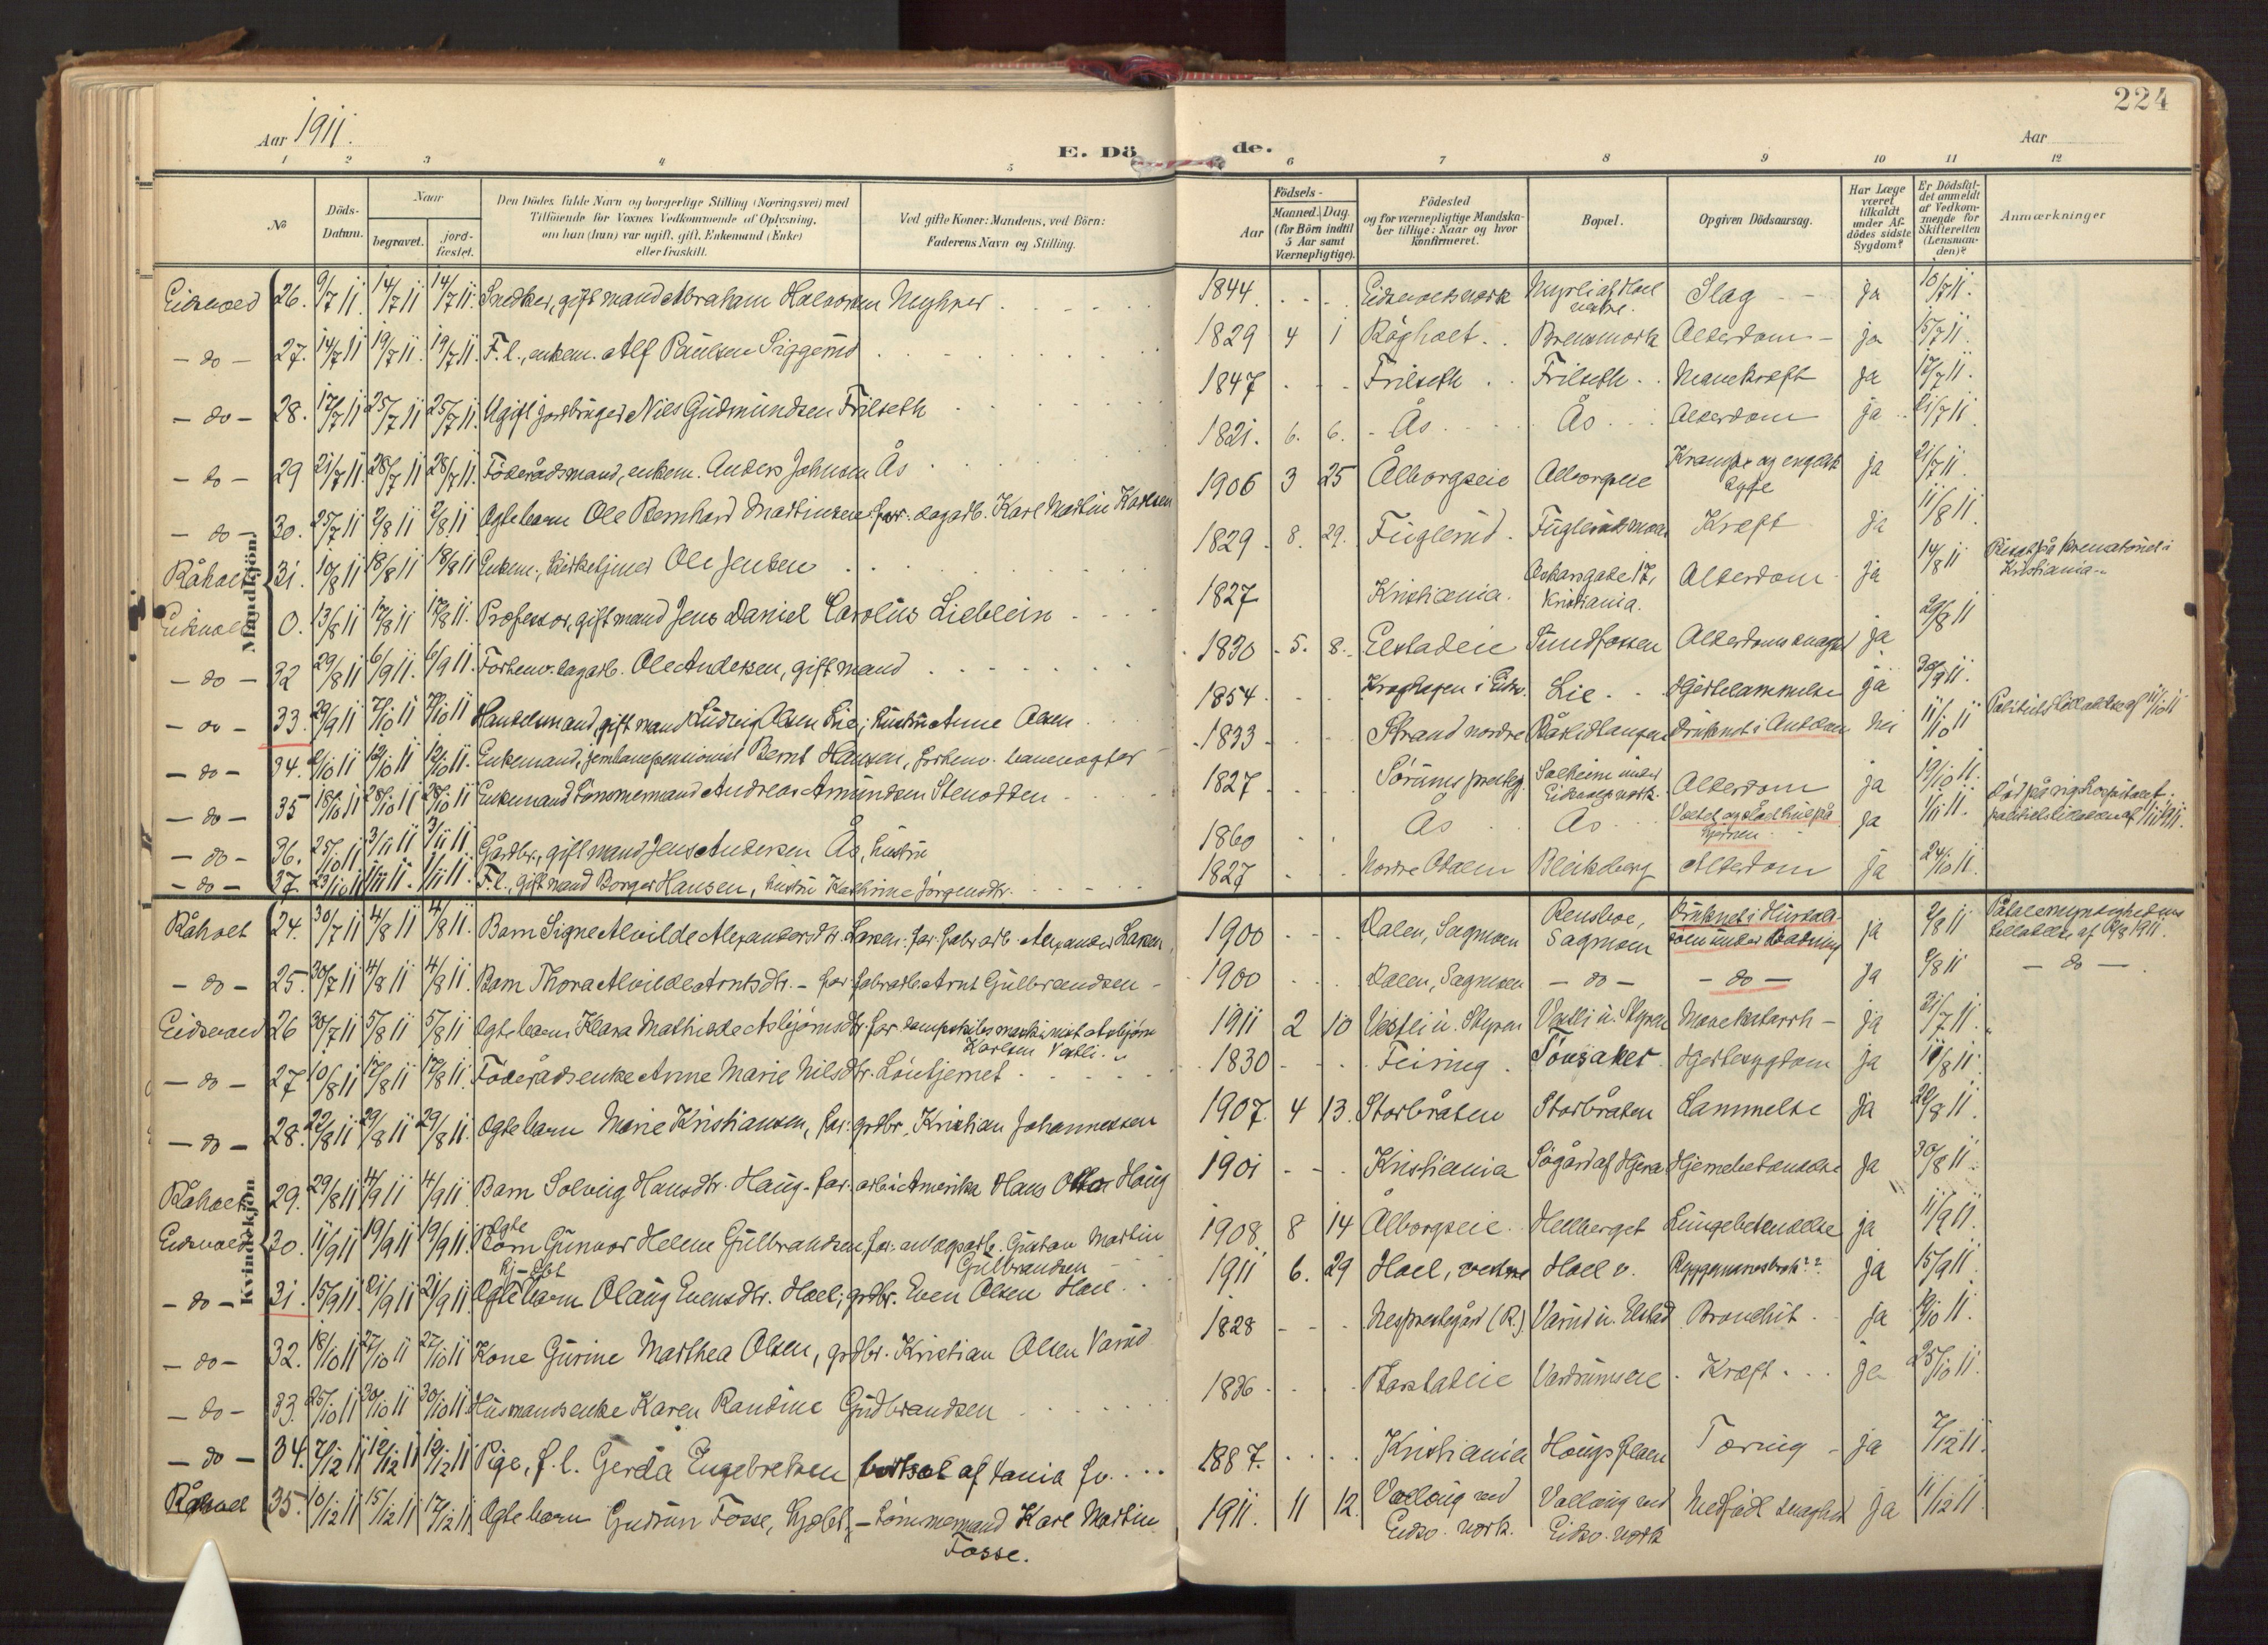 224
Aar 1911.
E. Dö de.
Aar
1 2 3 4 5 6 7 8 9 10 11 12
№
Döds-Datum.
Naar
begravet.
jord-fæstet.
Den Dödes fulde Navn og borgerlige Stilling (Næringsvei) med
Tilföiende for Voxnes Vedkommende af Oplysning,
om han (hun) var ugift, gift, Enkemand (Enke)
eller fraskilt.
Ved gifte Koner: Mandens, ved Börn:
Faderens Navn og Stilling.
Födsels-
Aar
Maaned. Dag.
(for Börn indtil
5 Aar samt
Værnepligtige).
Födested
og for værnepligtige Mandska-
ber tillige: Naar og hvor
konfirmeret.
Bopæl.
Opgiven Dödsaarsag.
Har Læge
været
tilkaldt
under Af-
dödes sidste
Sygdom?
Er Dödsfal-
det anmeldt
af Vedkom-
mende for
Skifteretten
(Lensman-
den)?
Anmærkninger
Mandkjön.
Eidsvold 26. 9/7 11 14/7 11 14/7 11. Snedker, gift mand Abraham Halvorsen Nyhner 1844 Eidsvoldsverk Slag ja 10/7 11.
- do - 27. 14/7 11 19/7 11. 19/7 11. F.l., enkem. Alf Paulsen Siggerud 1829 4 1 Råholt Alderdom ja 15/7 11.
- do - 28. 17/7 11 25/7 11 25/7 11. Ugift jordbruger Niels Gudmundsen Frilseth 1847 Frilseth Frilseth Mavekræft ja 17/7 11.
- do - 29 21/7 11 28/7 11 28/7 11. Föderådsmand, enkem. Anders Johnsen Ås 1821. 6. 6. Ås Ås Alderdom ja 21/7 11.
- do - 30. 25/7 11 2/8 11 2/8 11 Ægte barn Ole Bernhard Martinsen far: dagarb. Karl Martin Karlsen 1906 3 25 Ålborgseie Alborgseie Krampe og engelsk syge ja
Råholt 31. 10/8 11 18/8 11 18/8 11 Enkem., kirketjener Ole Jensen 1829 8. 29. Fuglerud Kræft ja 11/8 11.
Eidsvold 0. 13/8 11 17/8 11 17/8 11. Professor, gift mand Jens Daniel Carolus Lieblein 1827 Kristiania. Oskarsgade 17, Kristiania. Alderdom ja 14/8 11 på krematoriet i Kristiania
- do - 32 29/8 11 6/9 11. 6/9 11. Forhenv. dagarb. Ole Andersen, gift mand 1830 5. 8. Elstadeie Sundfossen ja 29/8 11
- do - 33. 29/9 11 7/10 11 7/10 11 Handelsmand, gift mand Ludvig Olsen Lie; hustru Anne Olsen 1854 Lie Hjertelammelse ja 30/9 11.
- do - 34. 12/10 11 12/10 11. Enkemand, jernbanepensionist Bernt Hansen, forhenv. banevogter 1833 Strand nordre Druknet i Nei 11/10 11
- do - 35 18/10 11 28/10 11 28/10 11 Enkemand Tömmermand Andreas Amundsen Stenodden 1827 Sörums prestegj. Solheim under Eidsvoldsverk. Alderdom ja 19/10 11.
- do - 36. 25/10 11 3/11 11 3/11 11 Gårdbr., gift mand Jens Andersen Ås, hustru 1860 Ås Ås ja 1/11 11. Död på rigshospitalet
- do - 37. 23/10 11 1/11 11. 1/11 11. F.l., gift mand Borger Hansen, hustru Kathrine Jörgensdtr. 1827 Nordre Odalen Bleiksberg Alderdom ja 24/10 11.
Kvindekjön.
Råholt 24. 30/7 11 4/8 11 4/8 11. Barn Signe Alvilde Alexandersdtr. Larsen. far: fabr.arb. Alexander Larsen 1900 Dalen, Sagmoen Sagmoen Druknet i under Badning ja 2/8 11
- do - 25. 30/7 11 4/8 11 4/8 11. Barn Thora Alvilde Arntsdtr. - far: fabr.arb. Arnt Gulbrandsen - 1900 Dalen, Sagmoen - do - - do - ja 2/8 11 - do -
Eidsvold 26 30/7 11 5/8 11 5/8 11 Ægte barn Klara Mathilde Asbjörnsdtr. far: dampskibsmaskinist Asbjörn
Karlsen Vestli. 1911 2 10 Vestli u. Styren Vestli u. Styren Mavekatarrh - ja 31/7 11.
- do - 27 10/8 11 17/8 11 17/8 11. Föderådsenke Anne Marie Nilsdtr. Löntjernet 1830 Feiring Tönsaker Hjertesygdom ja
- do - 28. 22/8 11 29/8 11 29/8 11. Ægte barn Marie Kristiansen, far: grdbr. Kristian Johannessen 1907. 4 13. Storbråten Storbråten Lammelse ja
Råholt 29. 29/8 11 4/9 11 4/9 11. Barn Solveig Hansdtr. Haug - far: arb. i Amerika Hans Haug 1901 Kristiania Hjernebetændelse ja 30/8 11
Eidsvold 30. 11/9 11 19/9 11 19/9 11. Ægte Barn Gunvor Helene Gulbrandsen far: anlægsarb. Gustav Martin
Gulbrandsen 1908 8 14 Ålborgseie Hellberget Lungebetendelse ja 11/9 11.
hj-döbt
- do - 31. 15/9 11. 21/9 11 21/9 11 Ægte barn Olaug Evensdtr. Hoel; grdbr. Even Olsen Hoel 1911 6. 29 Hoel, vestre Hoel v. Rygmarvsbrok?? ja 15/9 11.
- do - 32. 18/10 11 27/10 11 27/10 11 Kone Gurine Marthea Olsen, grdbr. Kristian Olsen Varud 1828 Nes prestegård (R.) Varud u. Elstad Bronchit ja 19/10 11.
- do - 33. 25/10 11 30/10 11 30/10 11. Husmandsenke Karen Randine Gudbrandsen 1836 Kræft ja 25/10 11.
- do - 34. 7/12 11 12/12 11 12/12 11 Pige, f.l. Gerda Engebretsen bortsat af Fania fv. 1887. Kristiania Tæring - ja 7/12 11.
Råholt 35. 10/12 11 15/12 11 17/12 11 Ægte barn Gudrun Fosse, hjdbt, - tömmermand Karl Martin
Fosse. 1911. 11 12. Vallaug ved Eidsv. verk. Vallaug ved Eidsv. verk Medfödt svaghed ja 11/12 11.